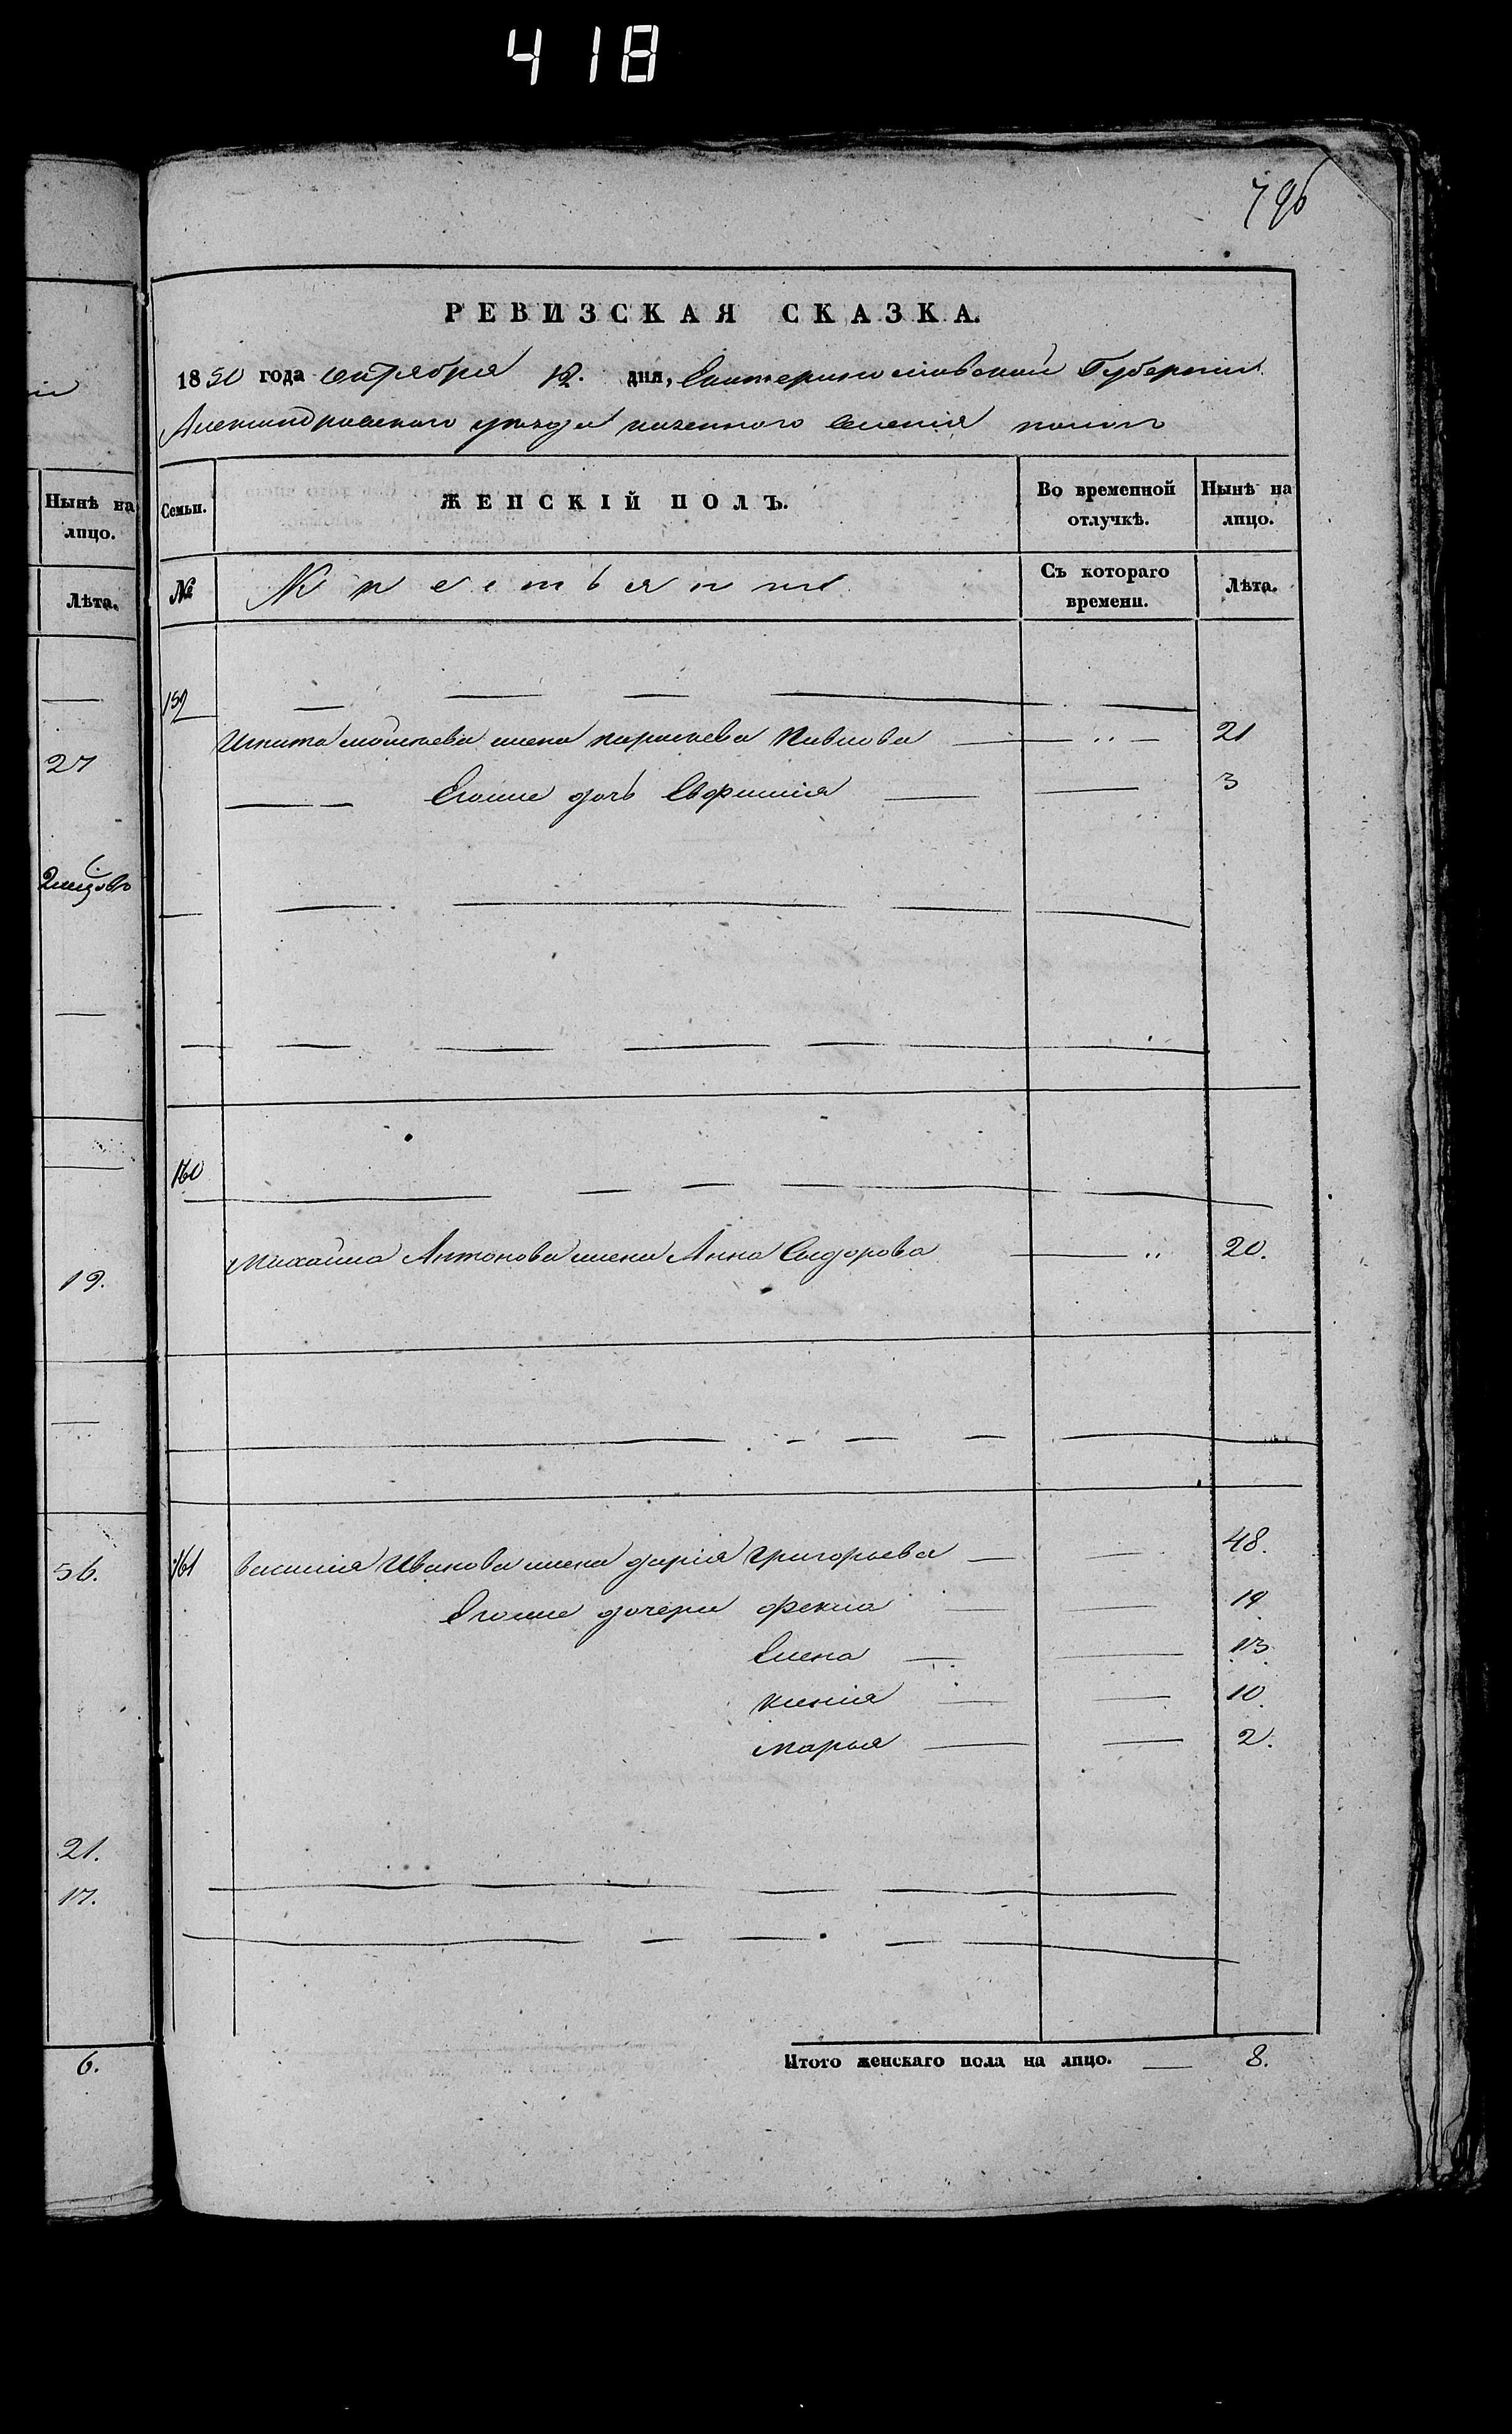 418
796
РЕВИЗСКАЯ СКАЗКА.
1850 года октября 12. дня, Екатеринославской Губерніи
Александровского уезда казенного селенія
Нынѣ на лицо.
Семьи.
ЖЕНСКІЙ ПОЛЪ.
Во временной отлучкѣ.
Нынѣ на лицо.
Лѣта.
№
Крестьяне
Съ котораго времени.
Лѣта.
159
Игната жена Павлова — 21
27
Егоже дочь Евфимия — 3
160
Михайла Антонова жена Анна Сидорова — 20.
19.
161 Василия Иванова жена дария Григорьева — 48.
56.
Егоже дочери фекла — 19
Елена — 13
ксения — 10.
марья — 2.
21.
17.
Итого женскаго пола на лицо. — 8.
6.